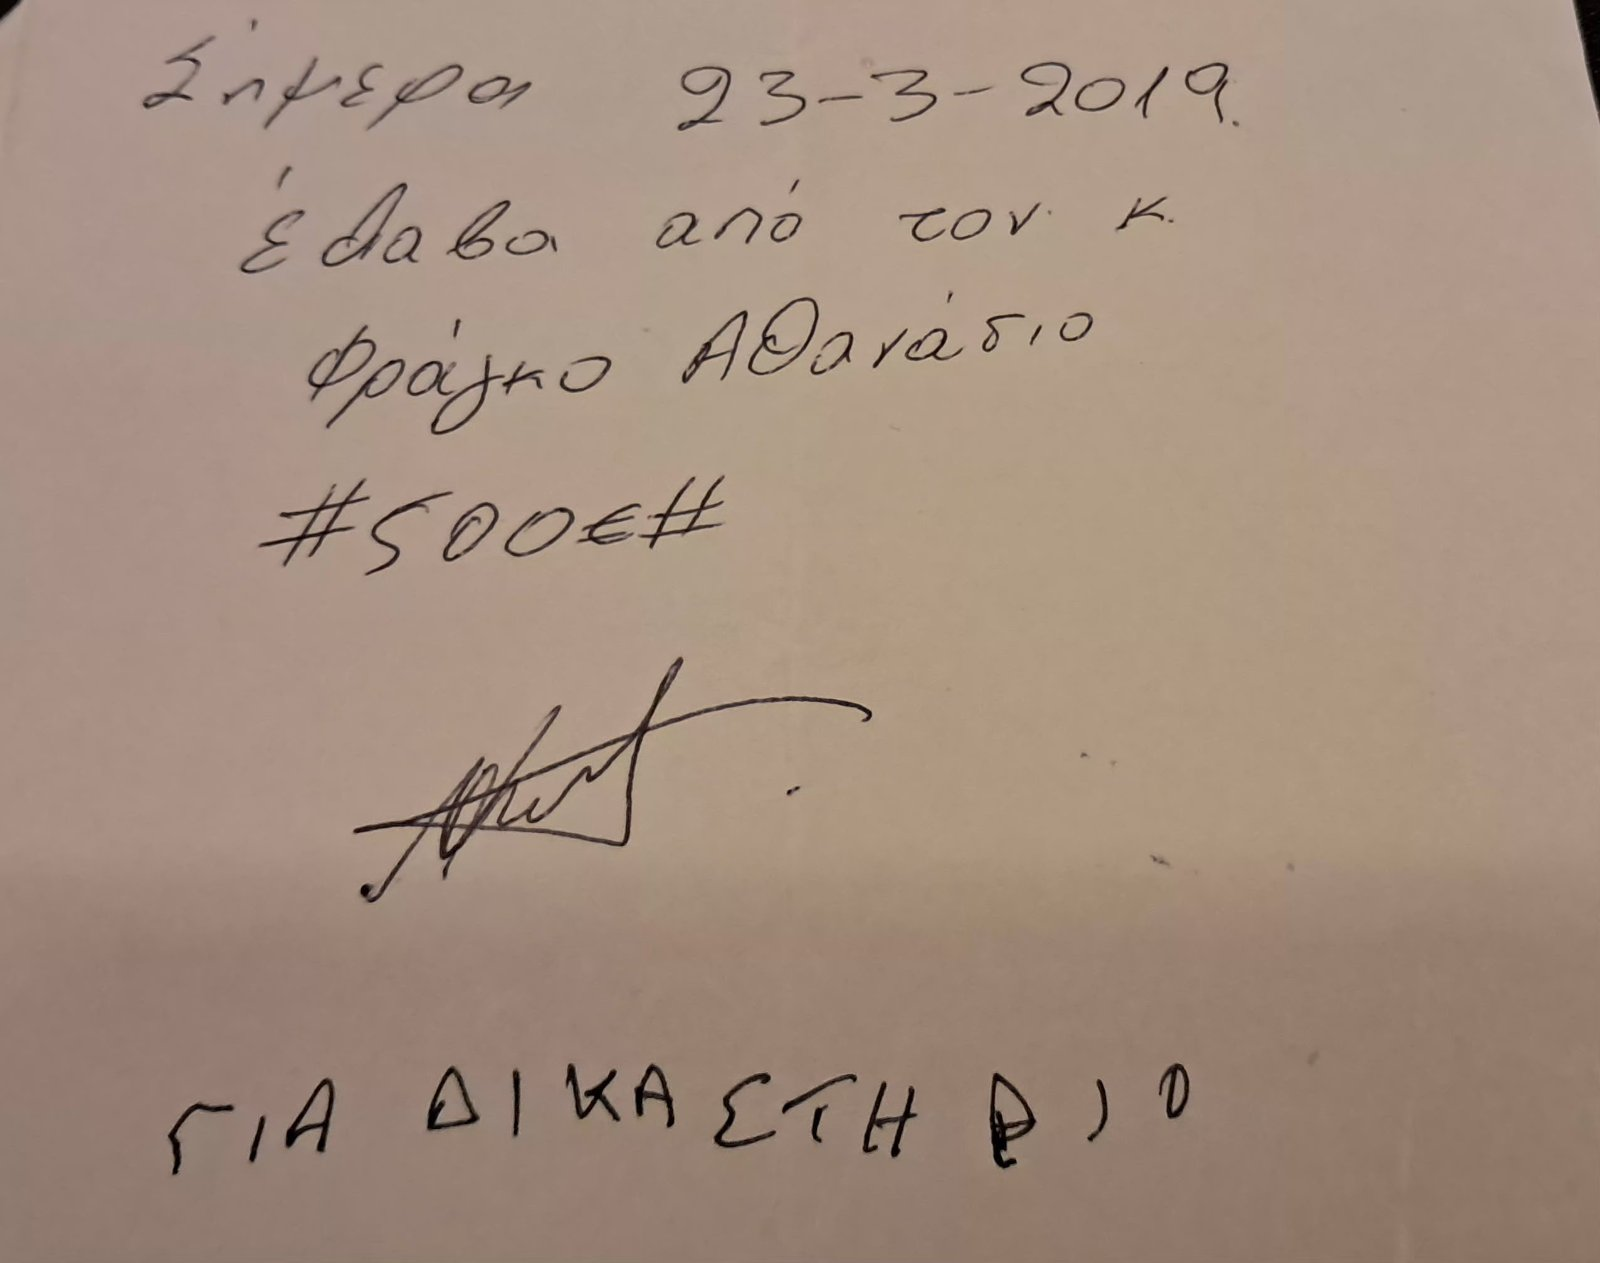 Σήμερα 23-3-2019.
έλαβα από τον κ.
Φράγκο Αθανάσιο
#500€#
ΓΙΑ ΔΙΚΑΣΤΗΡΙΟ